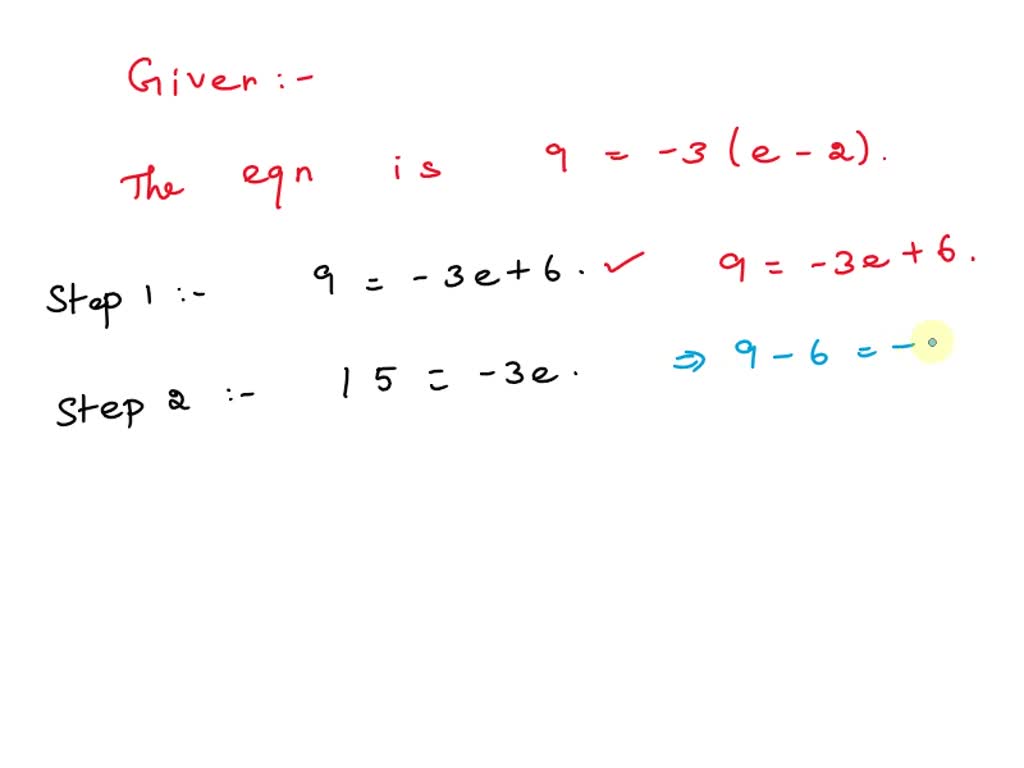 Given :-
The eqn is 9 = -3 (e - 2).
Step 1 :- 9 = -3e + 6. ✓ 9 = -3e + 6.
Step 2 :- 15 = -3e. ⇒ 9 - 6 = -